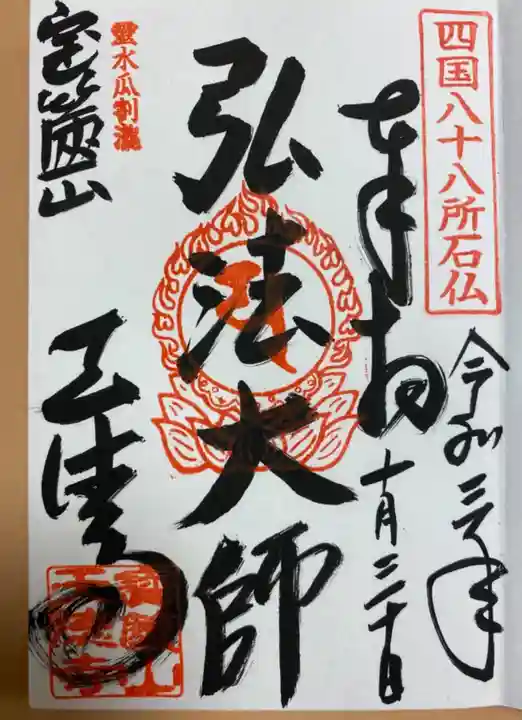 四国八十八所石仏
令和三年
奉拝
十月三十日
弘法大師
霊水瓜割瀧
宝篋山
玉清寺